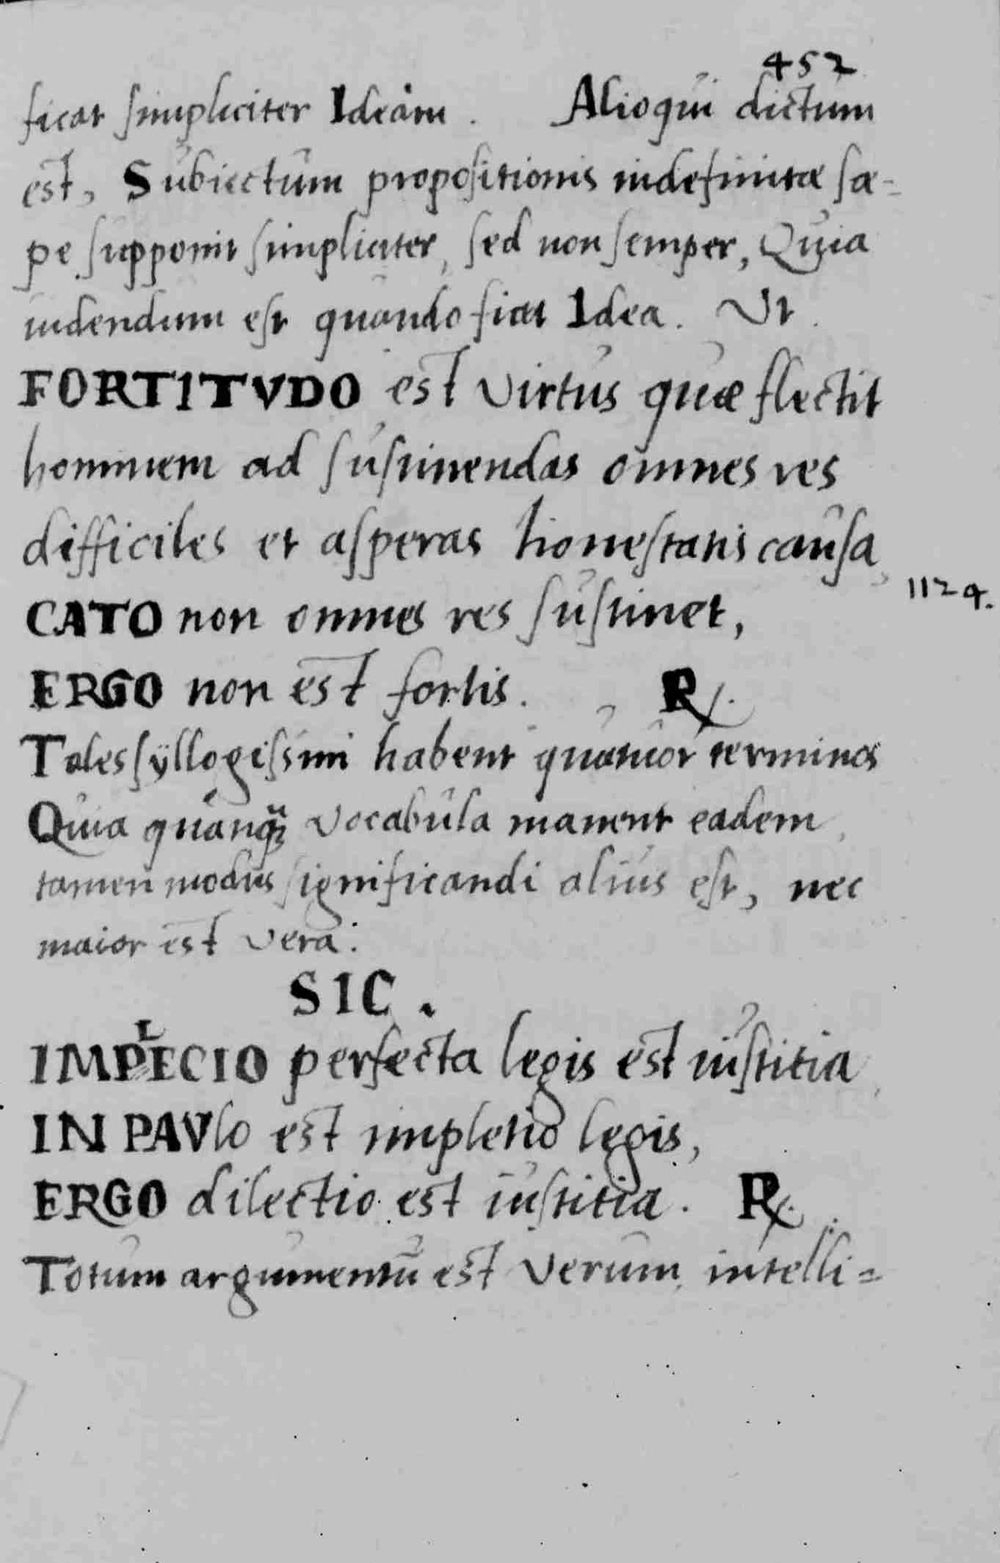 452
ficat simpliciter Ideam. Alioqui dictum
est, Subiectum propositionis indefinitæ sæ=
pe supponit simpliciter, sed non semper, Quia
uidendum est quando fiat Idea. Ut
FORTITVDO est virtus quæ flectit
hominem ad sustinendas omnes res
difficiles et asperas honestatis causa,
1124.
CATO non omnes res sustinet,
ERGO non est fortis. R/.
Tales syllogissimi habent quatuor terminos
Quia quanq̃ʒ vocabula manent eadem,
tamen modus significandi alius est, nec
maior est vera.
SIC.
IMPLECIO perfecta legis est iustitia,
IN PAVlo est impletio legis,
ERGO dilectio est iustitia. R/.
Totum argumentũ est verum, intelli=